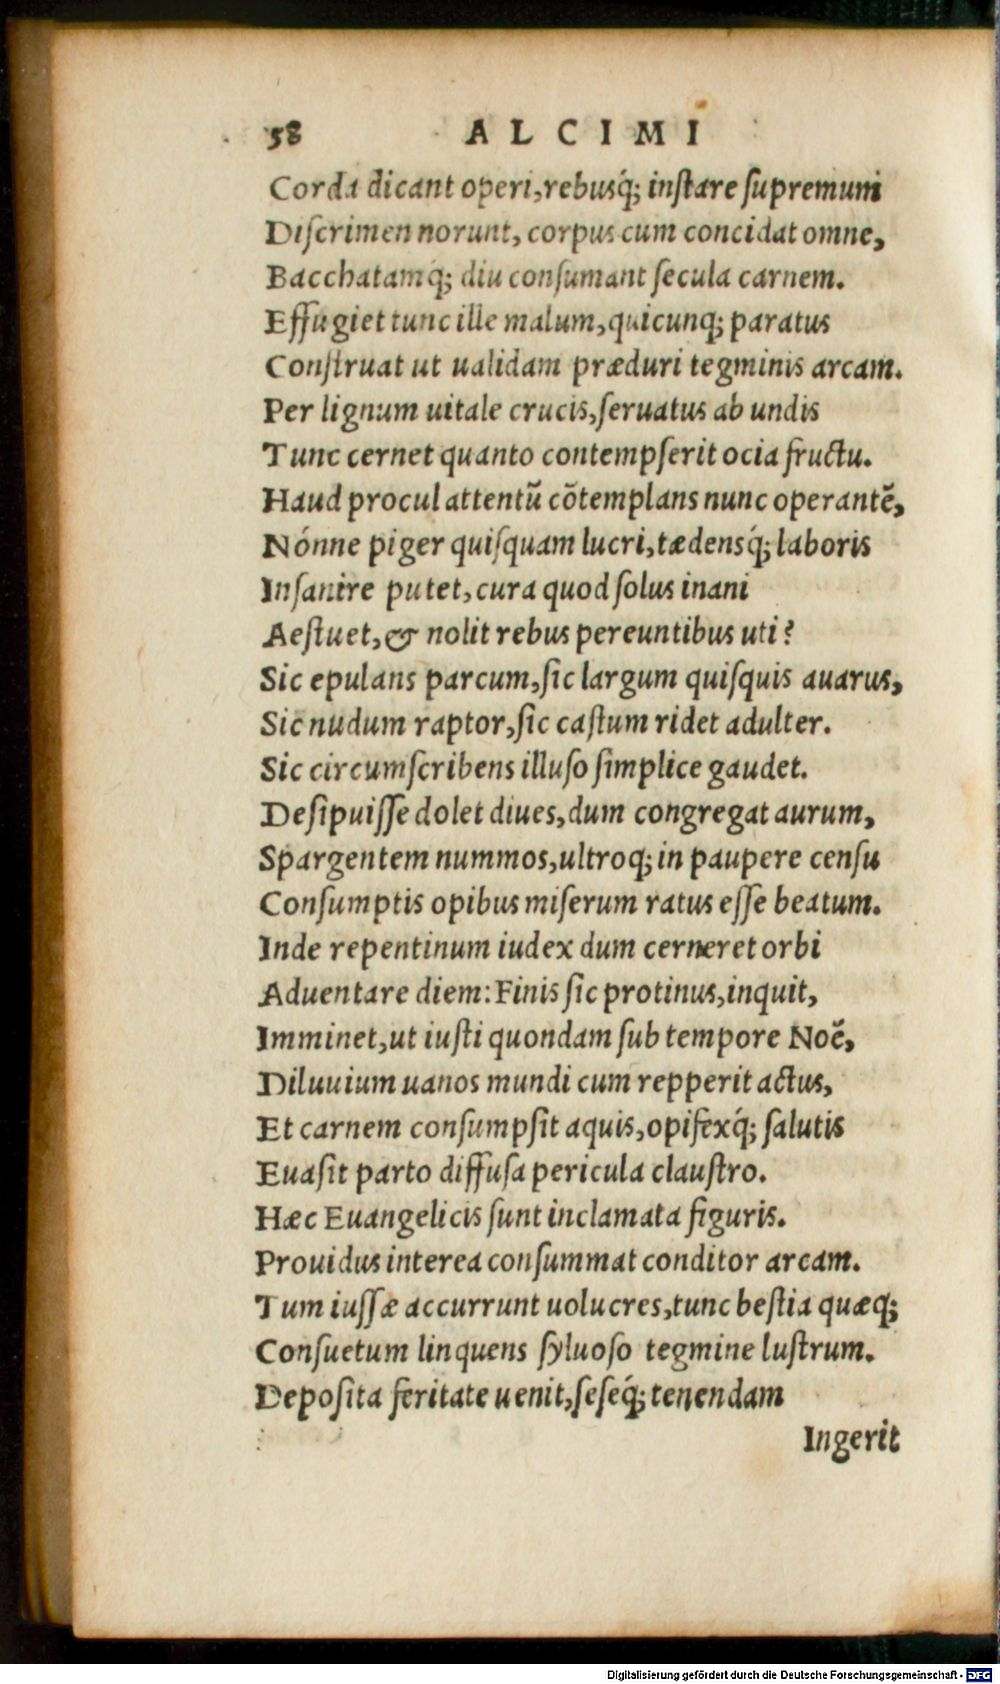 58 ALCIMI
Corda dicant operi, rebusq́; instare supremum
Discrimen norunt, corpus cum concidat omne,
Bacchatamq́; diu consumant secula carnem.
Effugiet tunc ille malum, quicunq; paratus
Construat ut ualidam præduri tegminis arcam.
Per lignum uitale crucis, seruatus ab undis
Tunc cernet quanto contempserit ocia fructu.
Haud procul attentũ cõtemplans nunc operantẽ,
Nónne piger quisquam lucri, tædensq́; laboris
Insanire putet, cura quod solus inani
Aestuet, & nolit rebus pereuntibus uti?
Sic epulans parcum, sic largum quisquis auarus,
Sic nudum raptor, sic castum ridet adulter.
Sic circumscribens illuso simplice gaudet.
Desipuisse dolet diues, dum congregat aurum,
Spargentem nummos, ultroq; in paupere censu
Consumptis opibus miserum ratus esse beatum.
Inde repentinum iudex dum cerneret orbi
Aduentare diem: Finis sic protinus, inquit,
Imminet, ut iusti quondam sub tempore Noẽ,
Diluuium uanos mundi cum repperit actus,
Et carnem consumpsit aquis, opifexq́; salutis
Euasit parto diffusa pericula claustro.
Hæc Euangelicis sunt inclamata figuris.
Prouidus interea consummat conditor arcam.
Tum iussæ accurrunt uolucres, tunc bestia quæq;
Consuetum linquens syluoso tegmine lustrum.
Deposita feritate uenit, seseq́; tenendam
Ingerit
Digitalisierung gefördert durch die Deutsche Forschungsgemeinschaft - DFG